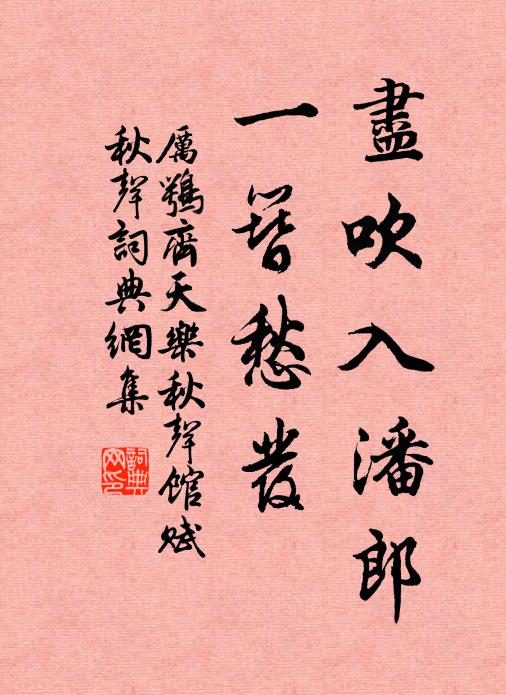 盡吹入潘郎
一簪愁發
厲鶚齊天樂秋聲館賦
秋聲詞典網集
詞典網印